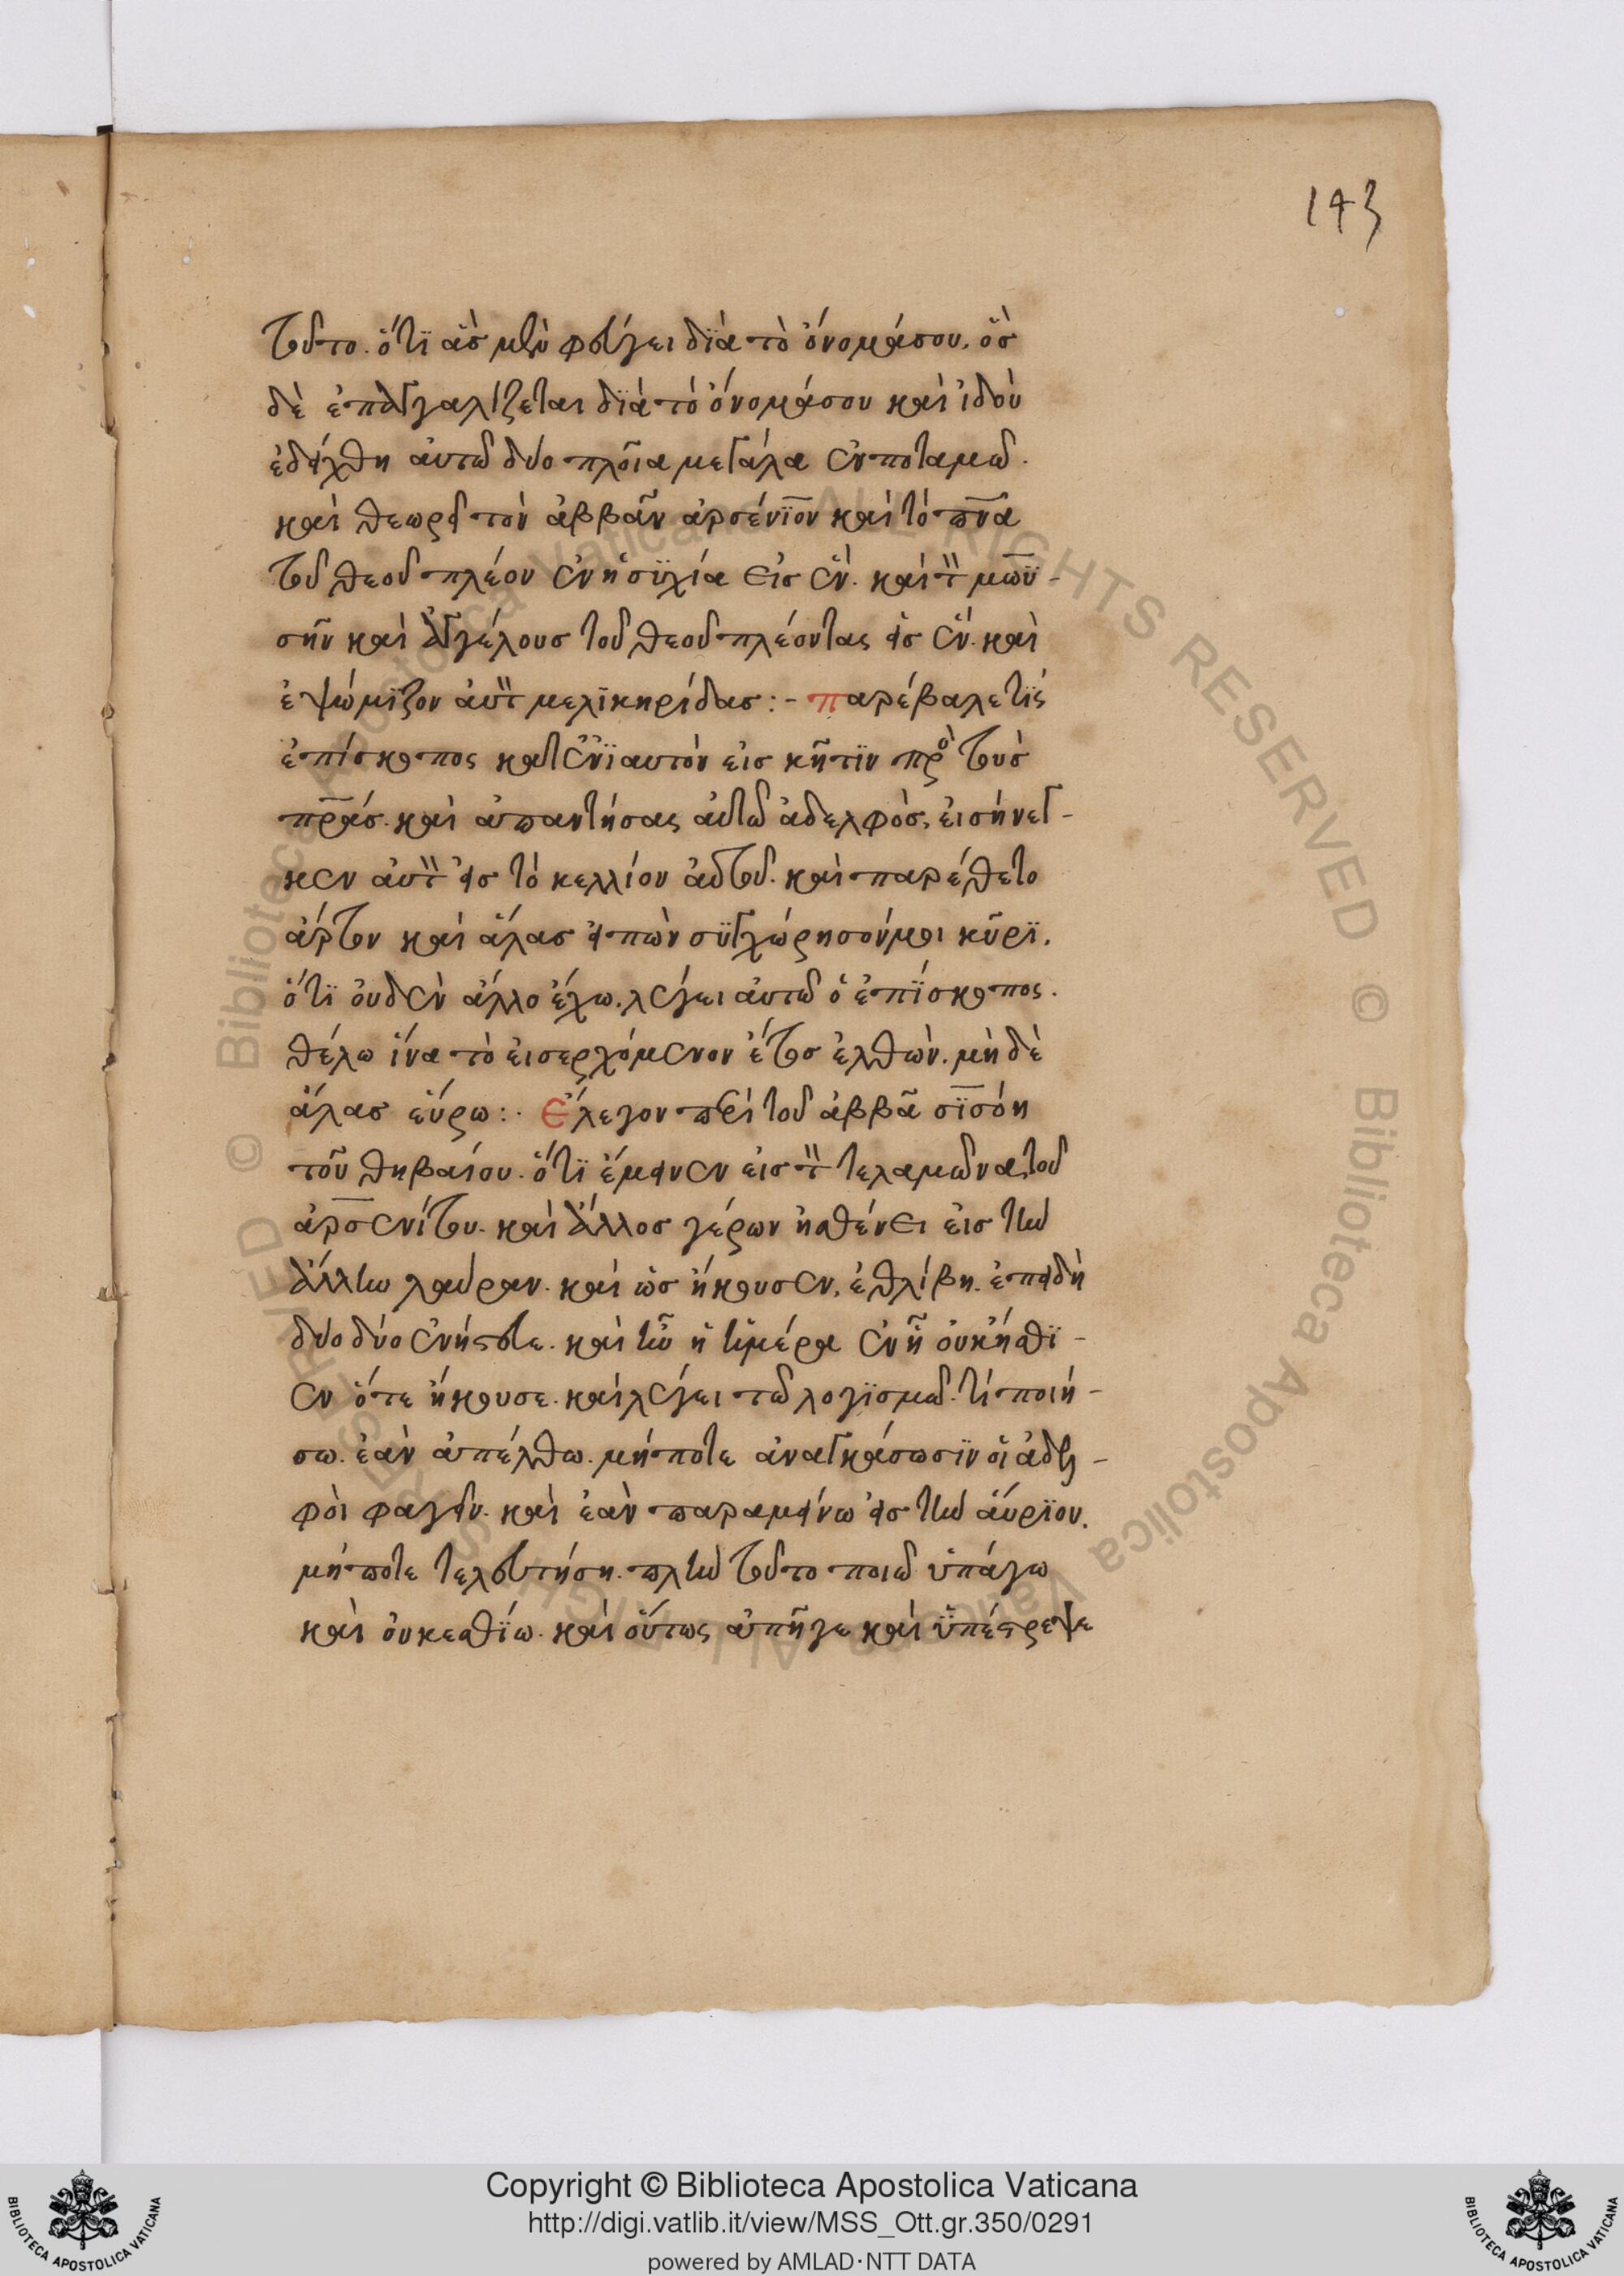 143
τοῦτο. ὅτι ἃς μὲν φεύγει διὰ τὸ ὄνομά σου. ὃς
δὲ ἐπαγγαλίζεται διὰ τὸ ὄνομά σου καὶ ἰδοὺ
ἐδείχθη αὐτῶ δύο πλοῖα μεγάλα ἐν ποταμῶ.
καὶ θεωρεῖ τὸν ἀββᾶν ἀρσένιον καὶ τὸ πνα
τοῦ θεοῦ πλέον ἐν ἡσυχία εἰς ἕν. καὶ τ μωϋ-
σῆν καὶ ἀγγέλους τοῦ θεοῦ πλέοντας εἰς ἕν. καὶ
ἐψώμιζον αὐτ μελικηρίδας :- παρέβαλε τὶς
ἐπίσκοπος κατ ἐνιαυτὸν εἰς κῆτιν πρὸ τοὺς
πρας. καὶ ἀπαντήσας αὐτῶ ἀδελφὸς, εἰσήνεγ-
κεν αὐτ εἰς τὸ κελλίον αὐτοῦ. καὶ παρέθετο
ἄρτον καὶ ἅλας εἰπὼν συγχώρησόν μοι κῦρι.
ὅτι οὐδὲν ἄλλο ἔχω. λέγει αὐτῶ ὁ ἐπίσκοπος.
θέλω ἵνα τὸ εἰσερχόμενον ἔτος ἐλθὼν. μὴ δὲ
ἅλας εὕρω :· Ἔλεγον περὶ τοῦ ἀββᾶ σισόη
τοῦ θηβαίου. ὅτι ἔμεινεν εἰς τ τελαμῶνα τοῦ
ἀρσενίτου. καὶ ἄλλος γέρων ἠσθένει εἰς τὴν
ἄλλην λαύραν. καὶ ὡς ἤκουσεν, ἐθλίβη. ἐπειδὴ
δύο δύο ἐνήστευε. καὶ ἦν ἡ ἡμέρα ἐν ἧ οὐκ ἤσθι-
εν ὅτε ἤκουσε. καὶ λέγει τῶ λογισμῶ. τί ποιή-
σω. ἐὰν ἀπέλθω. μήποτε ἀναγκάσωσιν οἱ ἀδελ-
φοὶ φαγεῖν. καὶ ἐὰν παραμείνω εἰς τὴν αὔριον.
μήποτε τελευτήση. πλὴν τοῦτο ποιῶ ὑπάγω
καὶ οὐκ εσθίω. καὶ οὕτως ἀπῆγε καὶ ὑπέστρεψε
© Biblioteca Apostolica Vaticana ALL RIGHTS RESERVED © Biblioteca Apostolica Vaticana ALL RIGHTS RESERVED
Copyright © Biblioteca Apostolica Vaticana
http://digi.vatlib.it/view/MSS_Ott.gr.350/0291
powered by AMLAD·NTT DATA
BIBLIOTECA APOSTOLICA VATICANA
BIBLIOTECA APOSTOLICA VATICANA